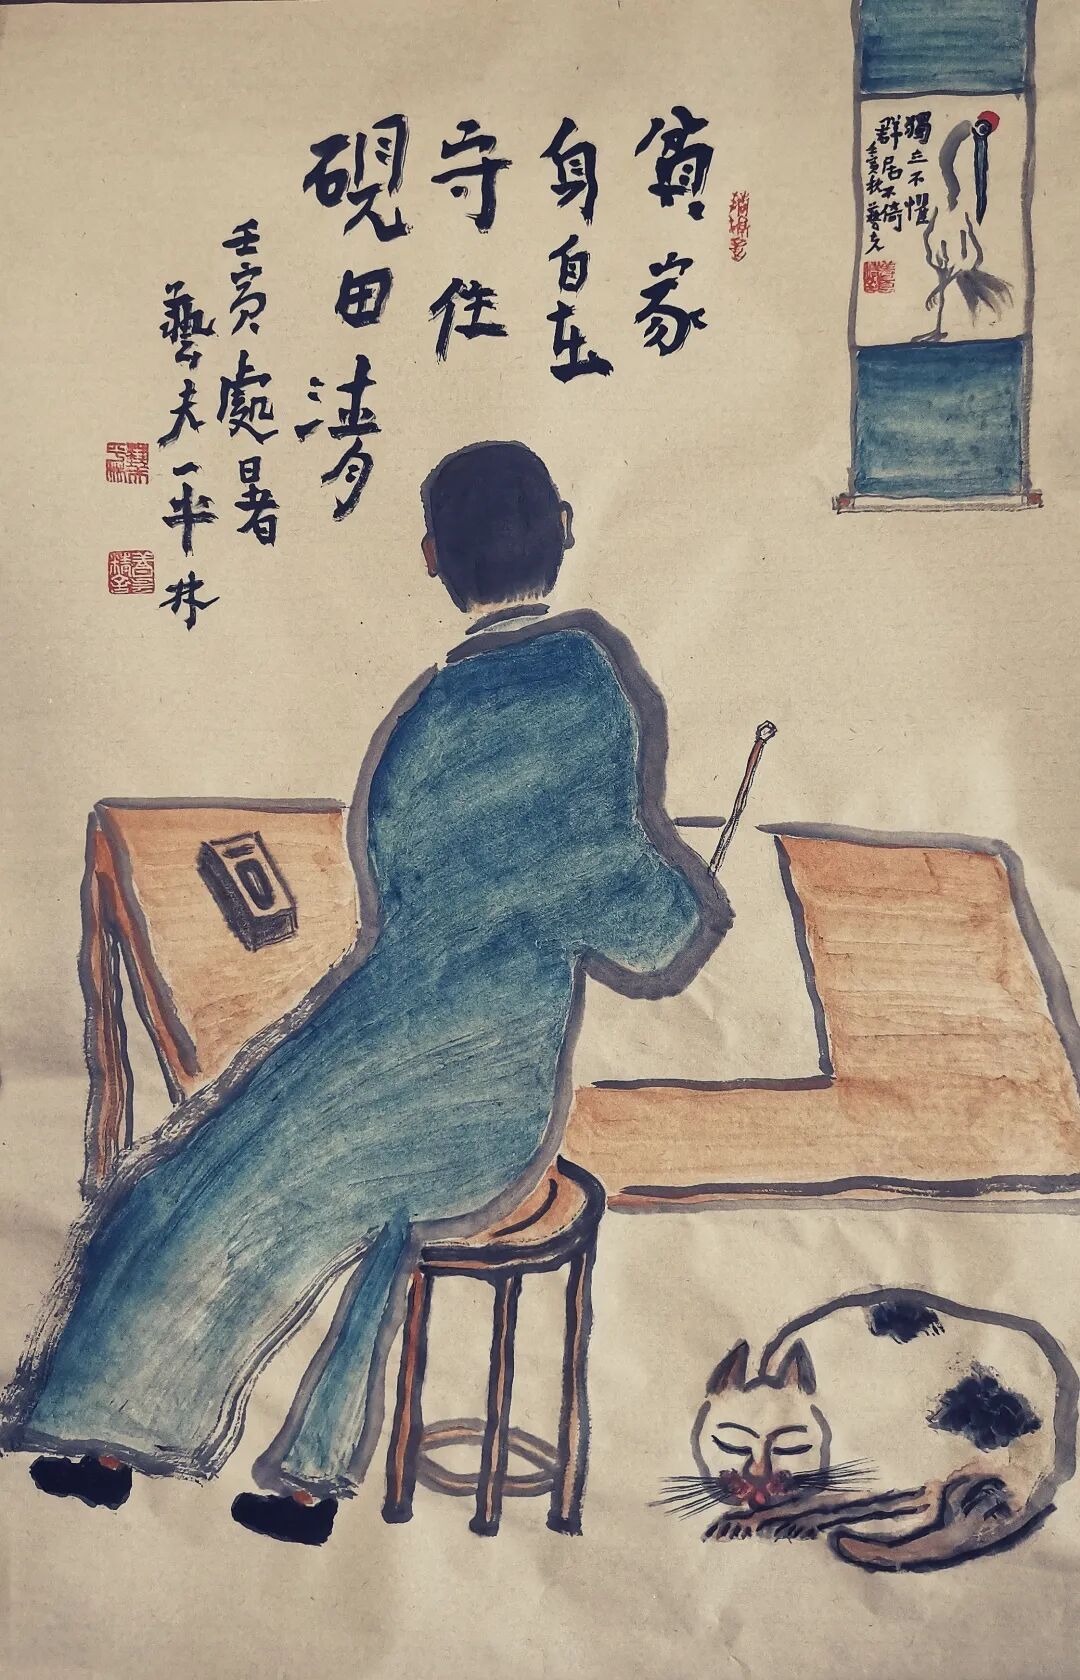 貧家
身自在
守住
硯田清
壬寅處暑
藝夫一林
獨立不懼
群居不倚
壬寅秋藝夫